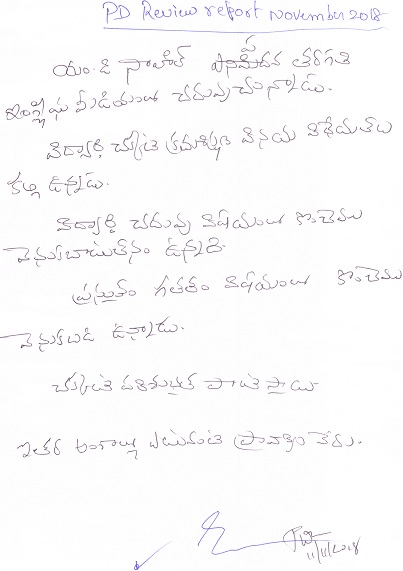 PD Review report November 2018
యం.డి సాహిల్ తరగతి
ఇంగ్లీషు మీడియంలో చదువుచున్నాడు.
విద్యార్థి చక్కటి క్రమశిక్షణ వినయ విధేయతలు
కల్గి ఉన్నాడు.
విద్యార్థి చదువు విషయంలో కొంచెము
వెనుకబాటుతనం ఉన్నది.
ప్రస్తుతం గణితం విషయంలో కొంచెము
వెనుకబడి ఉన్నాడు.
చక్కటి
ఇతర అంశాల్లో ఎటువంటి ప్రావీణ్యం లేదు.
11/11/2018